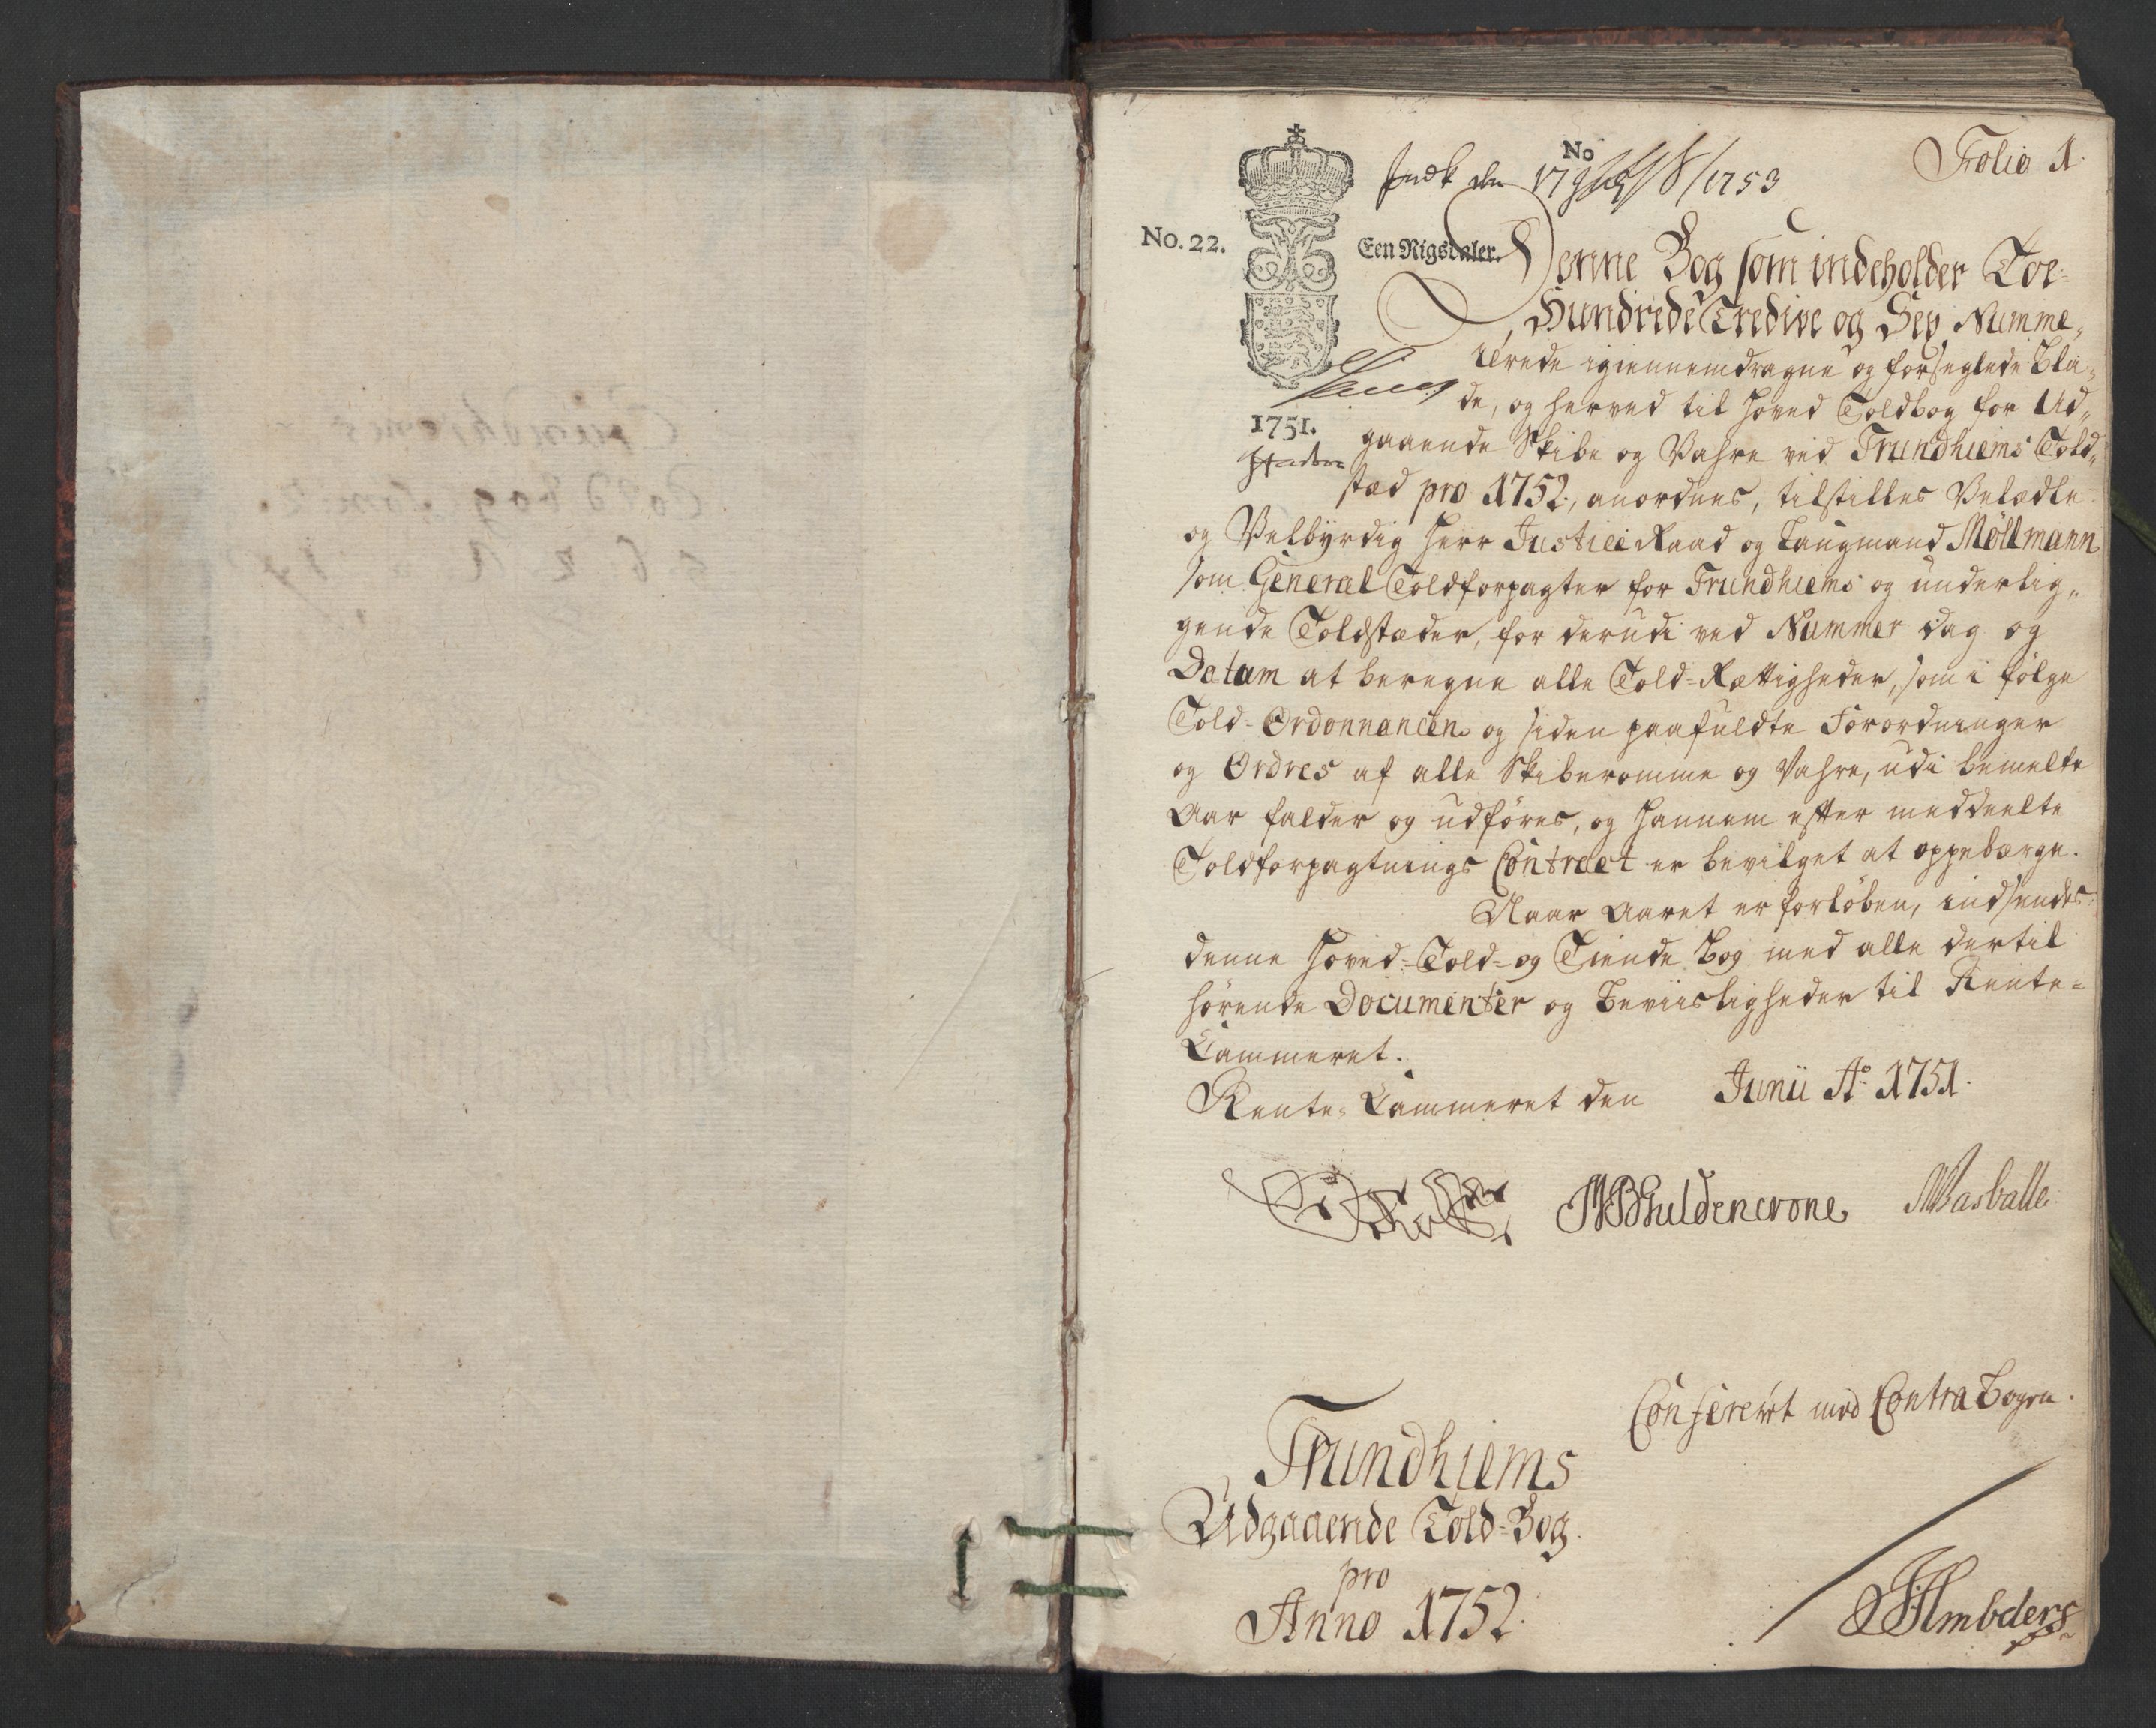 Folio 1.
No
Indk den 1753
No. 22.
Een Rigsdaler.
1751.
Denne Bog som indeholder Toe-
Hundrede Tredive og Sev Numme„
rerede igiennemdragne og forseglede Bla„
de, og herved til Hoved Toldbog for Ud„
gaaende Skibe og Vahre ved Trundhiems Told„
stæd pro 1752, anordnes, tilstilles Velædle
og Velbyrdig Herr Justice Raad og Laugmand Möllmann
som General Toldforpagter for Trundhiems og underlig„
gende Toldstæder, for derudi ved Nummer dag og
Datum at beregne alle Told-Rættigheder, som i følge
Told-Ordonnancen og siden paafuldte Forordninger
og Ordres af alle Skiberomme og Vahre, udi bemelte
Aar falder og udføres, og hannem efter meddeelte
Toldforpagtnings Contract er bevilget at oppebærge.
Naar Aaret er forløben, indsendes
denne Hoved-Told- og Tiende Bog med alle dertil
hørende Documenter og Beviisligheder til Rente-
Cammeret.
Rente-Cammeret den Junii Ao 1751.
MBGuldencrone
Wasballe
Conferert med Contra Bogen.
Trundhiems
Udgaaende Told-Bog.
pro
Anno 1752.